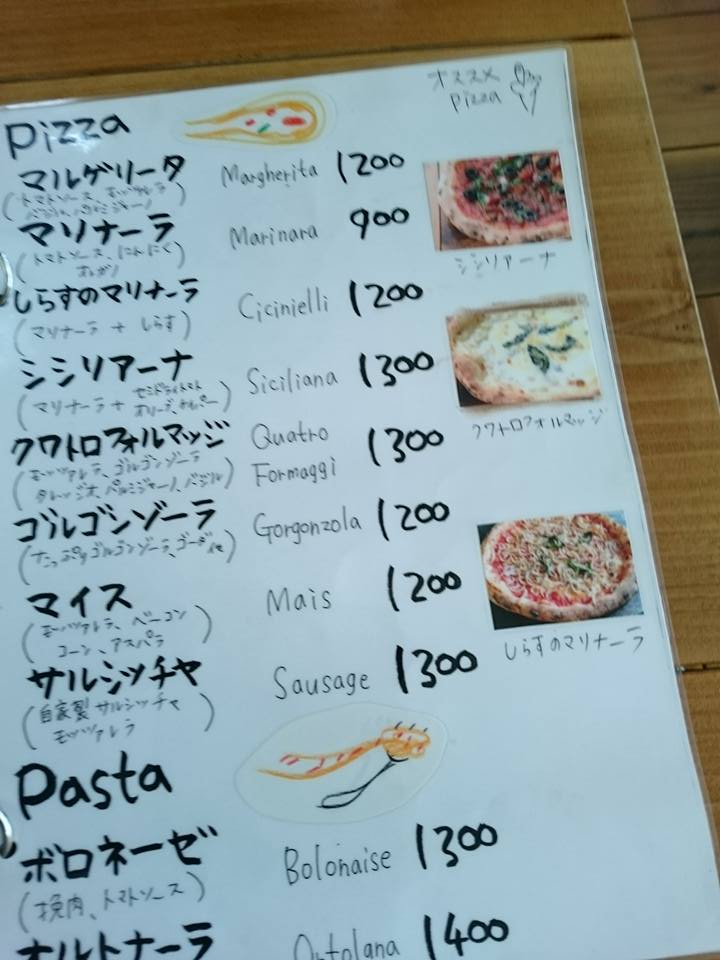 オススメ
pizza
Pizza
マルゲリータ Margherita 1200
(トマトソース、モッツァレラ
バジル、パルミジャーノ)
マリナーラ Marinara 900
(トマトソース、にんにく
オレガノ)
シシリアーナ
しらすのマリナーラ Cicinielli 1200
(マリナーラ + しらす)
シシリアーナ Siciliana 1300
(マリナーラ + セミドライトマト
オリーブ、ケッパー)
クワトロフォルマッジ
クワトロフォルマッジ Quatro
Formaggi 1300
(モッツァレラ、ゴルゴンゾーラ
タレッジオ、パルミジャーノ、バジル)
ゴルゴンゾーラ Gorgonzola 1200
(たっぷりゴルゴンゾーラ、ゴーダ)
マイス Mais 1200
(モッツァレラ、ベーコン
コーン、アスパラ)
しらすのマリナーラ
サルシッチャ Sausage 1300
(自家製サルシッチャ
モッツァレラ)
Pasta
ボロネーゼ Bolonaise 1300
(挽肉、トマトソース)
オルトナーラ Ortolana 1400